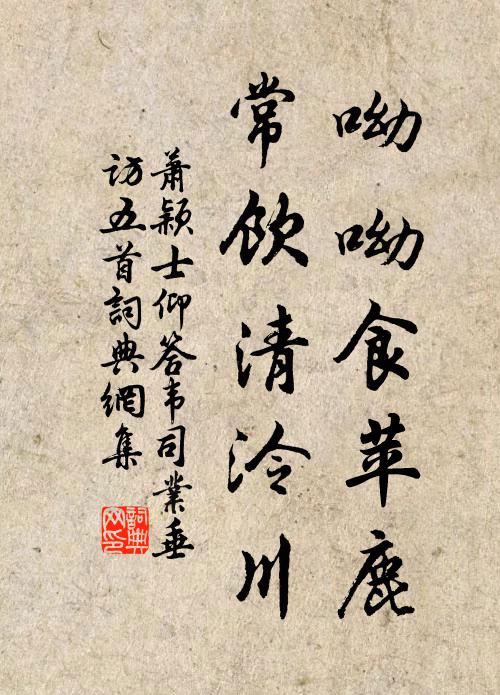 呦呦食苹鹿
常饮清泠川
萧颖士仰答韦司业垂
访五首詞典網集
詞典
网印